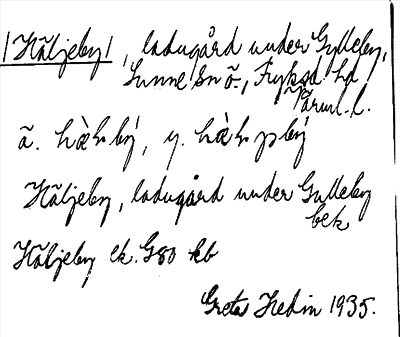 |Häljeby|, ladugård under Gylleby,
Sunne sn ö., Fryksd. hd
Värml. l.
ä. hæ̀lbý, y. hæ̀l
Häljeby, ladugård under Gylleby
bek
Häljeby ek. G80 kb
Greta Hedin 1935.